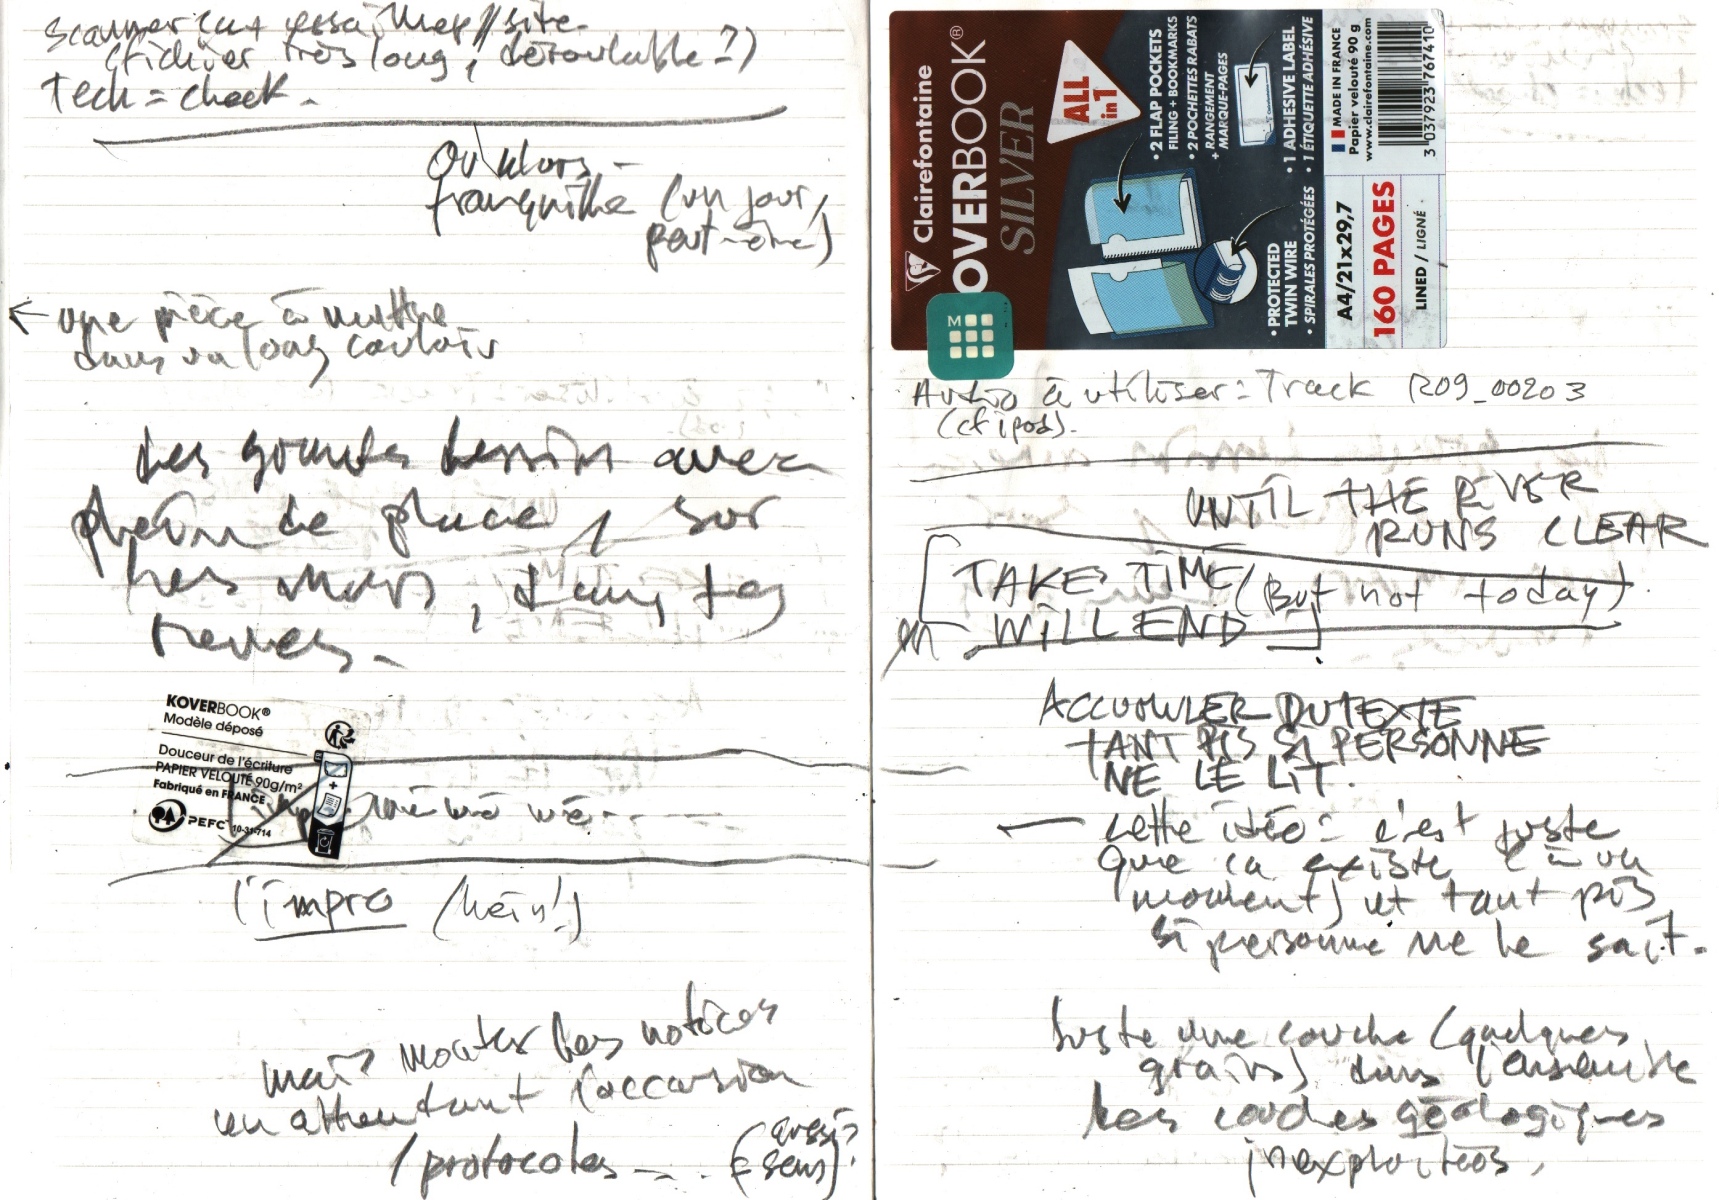 scanner
(fichier très long, déroulable ?)
Tech = check.
Ou alors -
tranquille (un jour,
peut-être)
← une pièce à mettre
dans un long couloir
des grands dessins avec
plein de place, sur
les murs, dans tes
rêves.
KOVERBOOK®
Modèle déposé
Douceur de l'écriture
PAPIER VELOUTÉ 90g/m²
Fabriqué en FRANCE
PEFC 10-31-714
même
l'impro (hein!)
mais monter les notices
en attendant l'occasion
/ protocoles
(aussi?
= sens)?
Clairefontaine
OVERBOOK®
SILVER
ALL
in 1
• 2 FLAP POCKETS
FILING + BOOKMARKS
• 2 POCHETTES RABATS
RANGEMENT
+ MARQUE-PAGES
• 1 ADHESIVE LABEL
• 1 ÉTIQUETTE ADHÉSIVE
• PROTECTED
TWIN WIRE
• SPIRALES PROTÉGÉES
MADE IN FRANCE
Papier velouté 90 g
www.clairefontaine.com
3 037923 767410
A4/21x29,7
160 PAGES
LINED / LIGNÉ
M
Audio à utiliser = Track R09_00203
(cf ipod).
UNTIL THE RIVER
RUNS CLEAR
TAKES TIME (But not today)
WILL END
ACCUMULER DU TEXTE
TANT PIS SI PERSONNE
NE LE LIT.
cette idée : c'est juste
que ça existe (à un
moment) et tant pis
si personne ne le sait.
Juste une couche (quelques
grains) dans l'ensemble
des couches géologiques
inexploitées.